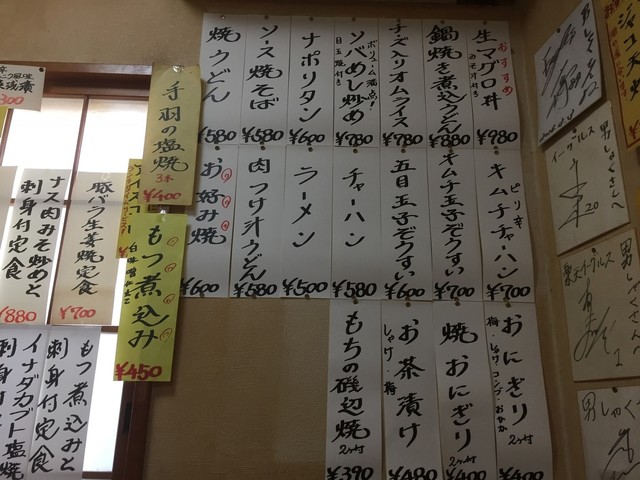 おすすめ
生マグロ丼
みそ汁付き
¥980
鍋焼き煮込うどん
¥880
チーズ入りオムライス
¥780
ソバめし炒め
ボリューム満点!
目玉焼付き
¥780
ナポリタン
¥600
ソース焼そば
¥580
焼うどん
¥580
ピリ辛
キムチチャーハン
¥700
キムチ玉子ぞうすい
¥700
五目玉子ぞうすい
¥600
チャーハン
¥580
ラーメン
¥500
肉つけ汁うどん
¥580
お好み焼
¥600
おにぎり
梅・しゃけ・コンブ・おかか
2ヶ付
¥400
焼おにぎり
2ヶ付
¥400
お茶漬け
しゃけ・梅
¥480
もちの磯辺焼
¥390
手羽の塩焼
3本
¥400
もつ煮込み
¥450
豚バラ生姜焼定食
¥700
ナス肉みそ炒めと
刺身付定食
¥880
もつ煮込みと
刺身付定食
イナダカブト塩焼
刺身付定食
300
男しゃくさんへ
イーグルス
20
楽天イーグルス
男しゃくさんへ
男しゃく